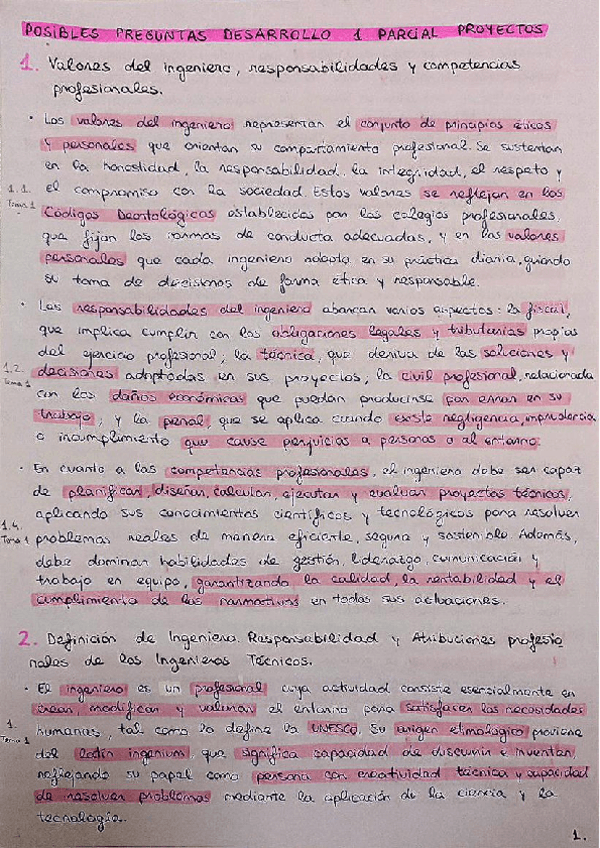 POSIBLES PREGUNTAS DESARROLLO 1 PARCIAL PROYECTOS
1. Valores del ingeniero, responsabilidades y competencias
profesionales.
• Los valores del ingeniero representan el conjunto de principios éticos
y personales que orientan su comportamiento profesional. Se sustentan
en la honestidad, la responsabilidad, la integridad, el respeto y
1.1. el compromiso con la sociedad. Estos valores se reflejan en los
Tema 1 Códigos Deontológicos establecidos por los colegios profesionales,
que fijan las normas de conducta adecuadas, y en los valores
personales que cada ingeniero adopta en su práctica diaria, guiando
su toma de decisiones de forma ética y responsable.
• Las responsabilidades del ingeniero abarcan varios aspectos: la fiscal,
que implica cumplir con las obligaciones legales y tributarias propias
del ejercicio profesional, la técnica, que deriva de las soluciones y
1.2. decisiones adoptadas en sus proyectos, la civil profesional, relacionada
Tema 1 con los daños económicos que puedan producirse por error en su
trabajo; y la penal, que se aplica cuando existe negligencia, imprudencia
o incumplimiento que cause perjuicios a personas o al entorno.
• En cuanto a las competencias profesionales, el ingeniero debe ser capaz
de planificar, diseñar, calcular, ejecutar y evaluar proyectos técnicos,
1.4. aplicando sus conocimientos científicos y tecnológicos para resolver
Tema 1 problemas reales de manera eficiente, segura y sostenible. Además,
debe dominar habilidades de gestión, liderazgo, comunicación y
trabajo en equipo, garantizando la calidad, la rentabilidad y el
cumplimiento de las normativas en todas sus actuaciones.
2. Definición de Ingeniero. Responsabilidad y Atribuciones profesio
nales de los Ingenieros Técnicos.
• El ingeniero es un profesional cuya actividad consiste esencialmente en
crear, modificar y valorar el entorno para satisfacer las necesidades
1. humanas, tal como lo define la UNESCO. Su origen etimológico proviene
Tema 1 del latín ingenium, que significa capacidad de discurrir e inventar,
reflejando su papel como persona con creatividad técnica y capacidad
de resolver problemas mediante la aplicación de la ciencia y la
tecnología.
1.